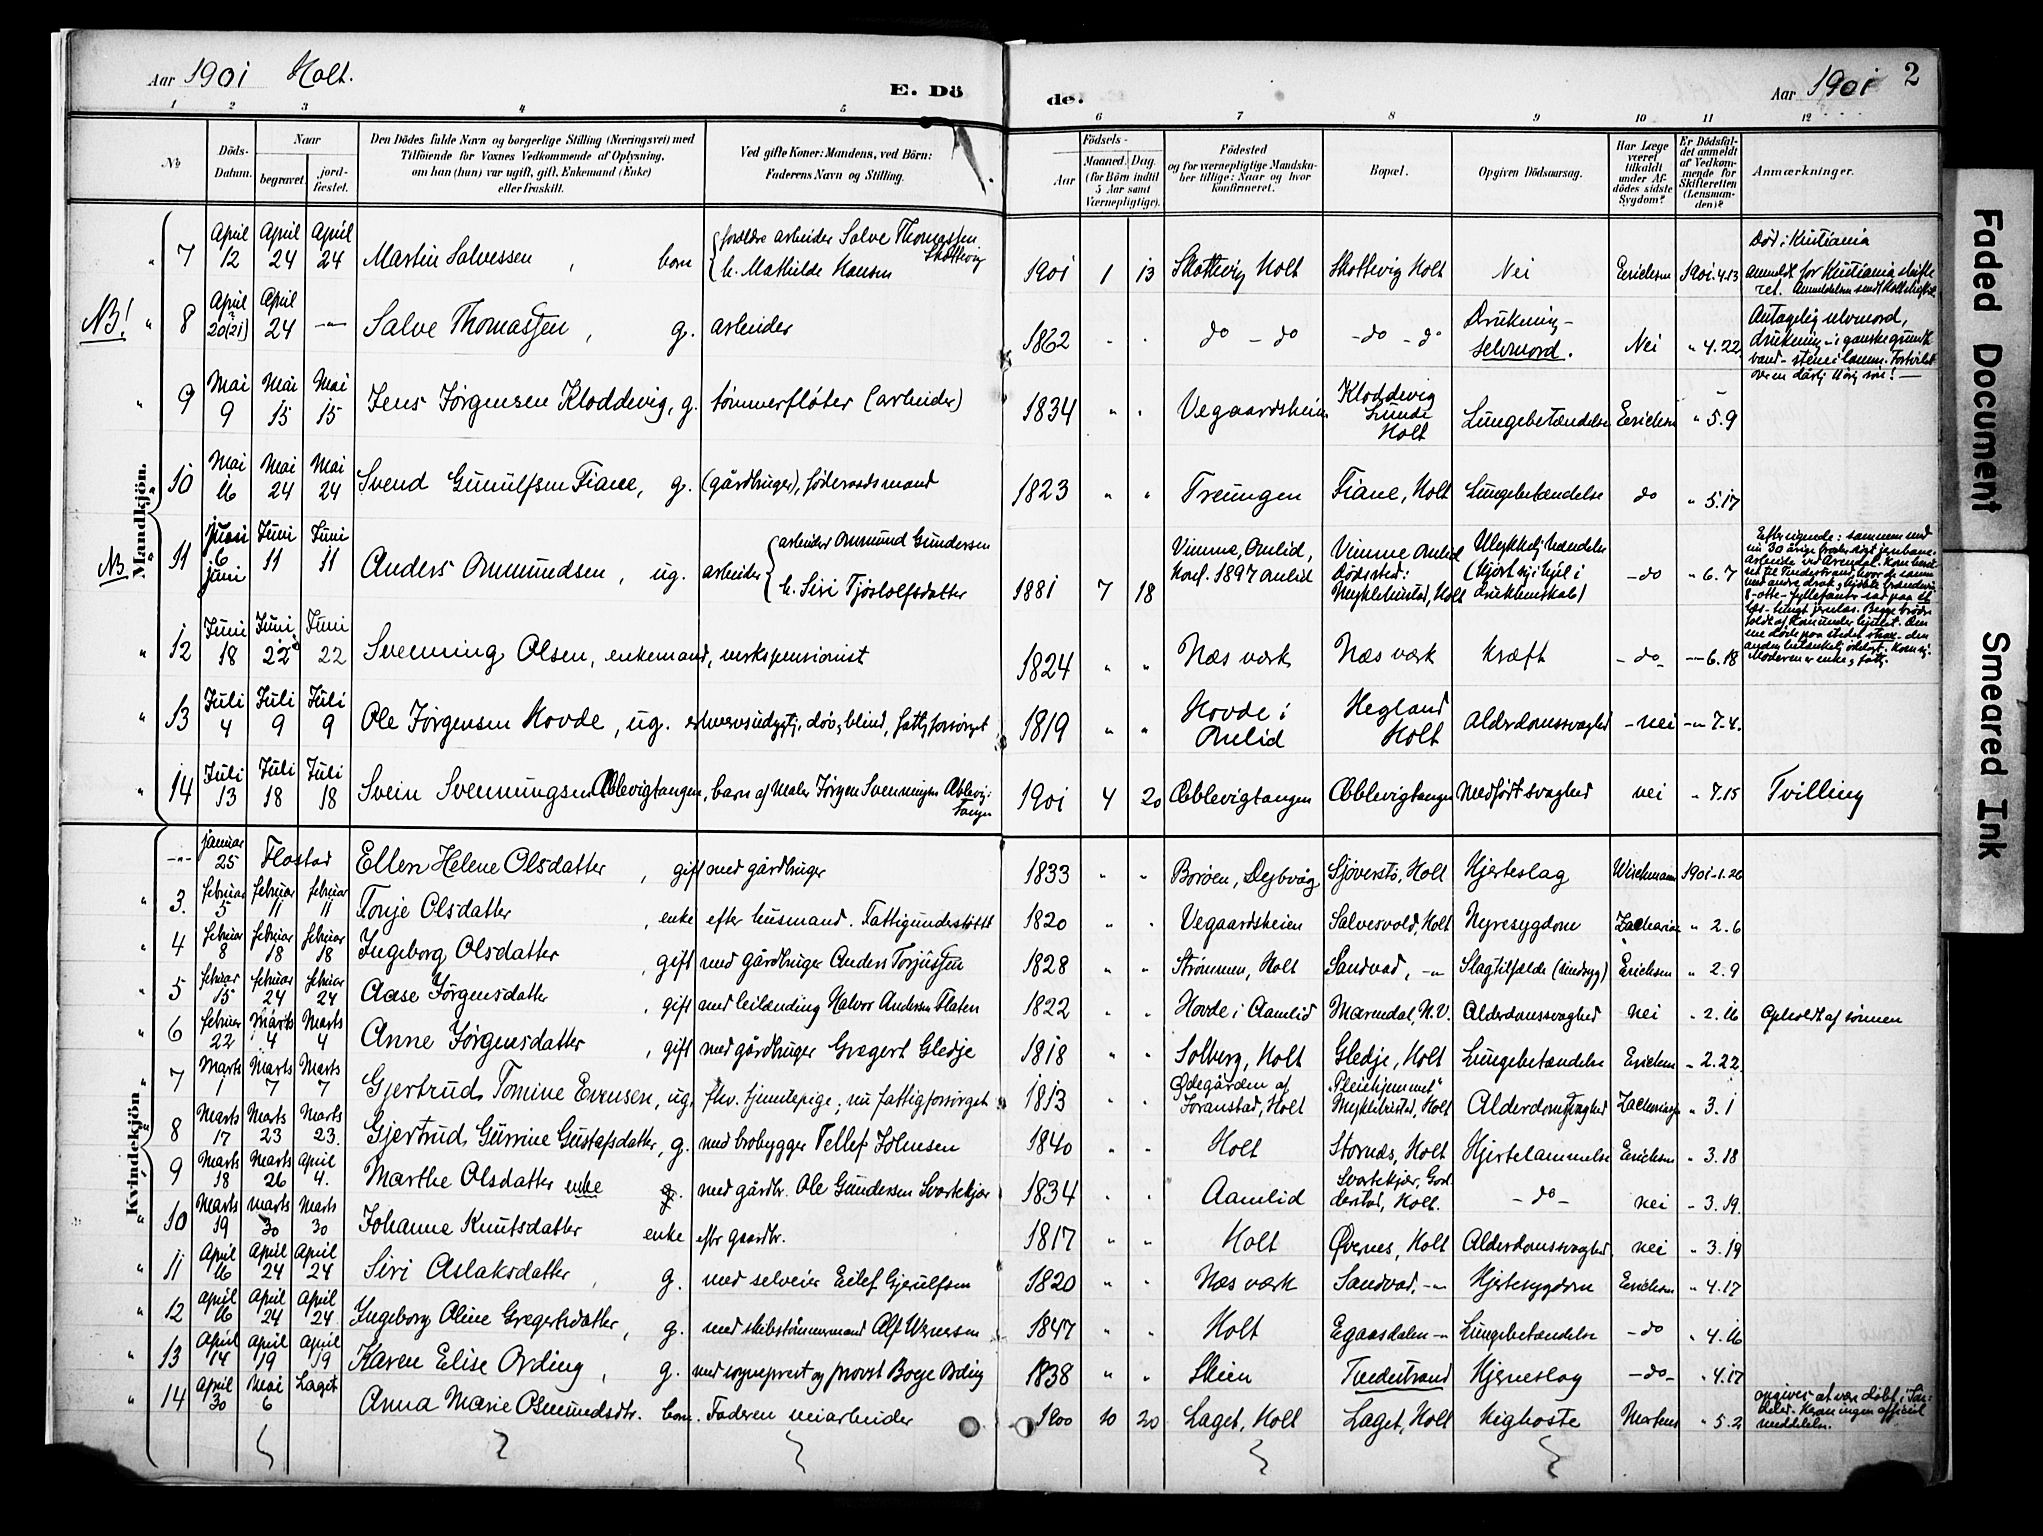 Aar 1901 Holt.
E. Döde.
Aar 1901
2
1 2 3 4 5 6 7 8 9 10 11 12
No
Döds-Datum.
Naar
begravet.
jordfæstet.
Den Dödes fulde Navn og borgerlige Stilling (Næringsvei) med Tilföiende for Voxnes Vedkommende af Oplysning, om han (hun) var ugift, gift, Enkemand (Enke) eller fraskilt.
Ved gifte Koner: Mandens, ved Börn: Faderens Navn og Stilling.
Födsels-
Aar
Maaned. Dag. (for Börn indtil 5 Aar samt Værnepligtige).
Födested og for værnepligtige Mandskaber tillige: Naar og hvor konfirmeret.
Bopæl.
Opgiven Dödsaarsag.
Har Læge været tilkaldt under Afdödes sidste Sygdom?
Er Dödsfaldet anmeldt af Vedkommende for Skifteretten (Lensmanden)?
Anmærkninger.
Mandkjön.
" 7 April 12 April 24 April 24 Martin Salvessen, barn forældre arbeider Salve Thomassen Skottevig h. Mathilde Hansen 1901 1 13 Skottevig Holt Skottevig Holt Nei Erichsen 1901.4.13 Död i Kristiania anmeldt for Kristiania skifteret. Anmeldelsen sendt Holt
NB! " 8 April 20(21) April 24 -"- Salve Thomassen, g. arbeider 1862 " " do - do -do - do Drukning - selvmord. Nei " 4.22 Antagelig selvmord, drukning - i ganske grundt vand - stene i lomm.
" 9 Mai 9 Mai 15 Mai 15 Jens Jørgensen Kloddevig, g. tømmerfløter (arbeider) 1834 " " Vegaardsheien Kloddevig Lunde Holt Lungebetændelse Erichsen " 5.9
" 10 Mai 16 Mai 24 Mai 24 Svend Gunulfsen Fiane, g. (gårdbruger), føderaadsmand 1823 " " Treungen Fiane, Holt Lungebetændelse do " 5.17
NB " 11 6 juni Juni 11 Juni 11 Anders Ommundsen, ug. arbeider arbeider Ommund Gundersen h. Siri Tjøstolfsdatter 1881 7 18 Vimme, Omlid, Konf. 1897 Omlid Vimme Omlid Dødssted: Myklebustad, Holt Ulykkelig hændelse (kjørt sig ihjel i drukkenskab) -do " 6.7
" 12 Juni 18 Juni 22 Juni 22 Svenning Olsen, enkemand, verkspensionist 1824 " " Næs værk Næs værk Kræft -do- -"-6.18
" 13 Juli 4 Juli 9 Juli 9 Ole Jørgensen Hovde, ug. erhvervsudygtig, døv, blind, fattigforsørget 1819 " " Hovde i Omlid Hegland Holt Alderdomssvaghed -nei -"-7.4.
" 14 Juli 13 Juli 18 Juli 18 Svein Svenningsen Æblevigtangen, barn af Maler Jørgen Svenningsen Æblevigtangen 1901 4 20 Æblevigtangen Æblevigtangen Medfødt svaghed nei " 7.15 Tvilling
Kvindekjön
-"- Januar 25 Flostad Ellen Helene Olsdatter, gift med gårdbruger 1833 " " Borøen, Dybvåg Sjøverstø, Holt Hjerteslag Wichmann 1901-1.26
" 3. februar 5 februar 11 februar 11 Tonje Olsdatter, enke efter husmand. Fattigunderstøttet 1820 " " Vegaardsheien Salvesvold, Holt Nyresygdom " 2.6
" 4 februar 8 februar 18 februar 18 Ingeborg Olsdatter, gift med gårdbruger Anders Torjussen 1828 " " Strømmen, Holt Sandvad, -"- Slagtilfælde (sindssyg) Erichsen " 2.9
" 5 februar 15 februar 24 februar 24 Aase Jørgensdatter, gift med leilænding Halvor Andersen Flaten 1822 " " Hovde i Aamlid Mærendal, N.V. Alderdomssvaghed nei " 2.16 Opholdt af sønnen
" 6 februar 22 Marts 4 Marts 4 Anne Jørgensdatter, gift med gårdbruger Gregert Gledje 1818 " " Solberg, Holt Gledje, Holt Lungebetændelse Erichsen " 2.22
" 7 Marts 1 Marts 7 Marts 7 Gjertrud Tomine Evensen, ug. fhv. tjenestepige; nu fattigforsørget 1813 " " Ødegården af Foranstad, Holt "Pleiehjemmet" Myklebustad, Holt Alderdomssvaghed " 3.1
" 8 Marts 17 Marts 23 Marts 23. Gjertrud Gurine Gustafsdatter, g. med brobygger Tellef Johnsen 1840 " " Holt Stornæs, Holt Hjertelammelse Erichsen " 3.18
" 9 Marts 18 Marts 26 April 4. Marthe Olsdatter enke g. med gårdbr. Ole Gundersen Svartekjær 1834 " " Aamlid Svartekjær, Godderstad, Holt. -do- nei " 3.19.
" 10 Marts 19 Marts 30 Marts 30 Johanne Knutsdatter enke eftr gaardbr. 1817 " " Holt Øvernes, Holt Alderdomssvaghed nei " 3.19
" 11 April 16 April 24 April 24 Siri Aslaksdatter, g. med selveier Eilef Gjeruldsen 1820 " " Næs værk Sandvad, -"- Hjertesygdom Erichsen " 4.17
" 12 April 16 April 24 April 24 Ingeborg Oline Gregertsdatter, g. med skibstømmermand Alf Wernersen 1847 " " Holt Egaasdalen -"- Lungebetændelse -do " 4.16
" 13 April 14 April 19 April 19 Karen Elise Ording, g. med sogneprest og provst Boye Ording 1838 " " Skien Tvedestrand Hjerneslag -do- " 4.17
" 14 April 30 Mai 6 Laget Anna Marie Osmundsdtr. barn. Faderen veiarbeider 1900 10 20 Laget, Holt Laget, Holt Kighoste Mortens " 5.2 opgives at være døbt i Søndeled. Kom ingen officiel meddelelse.
Faded Document
Smeared Ink